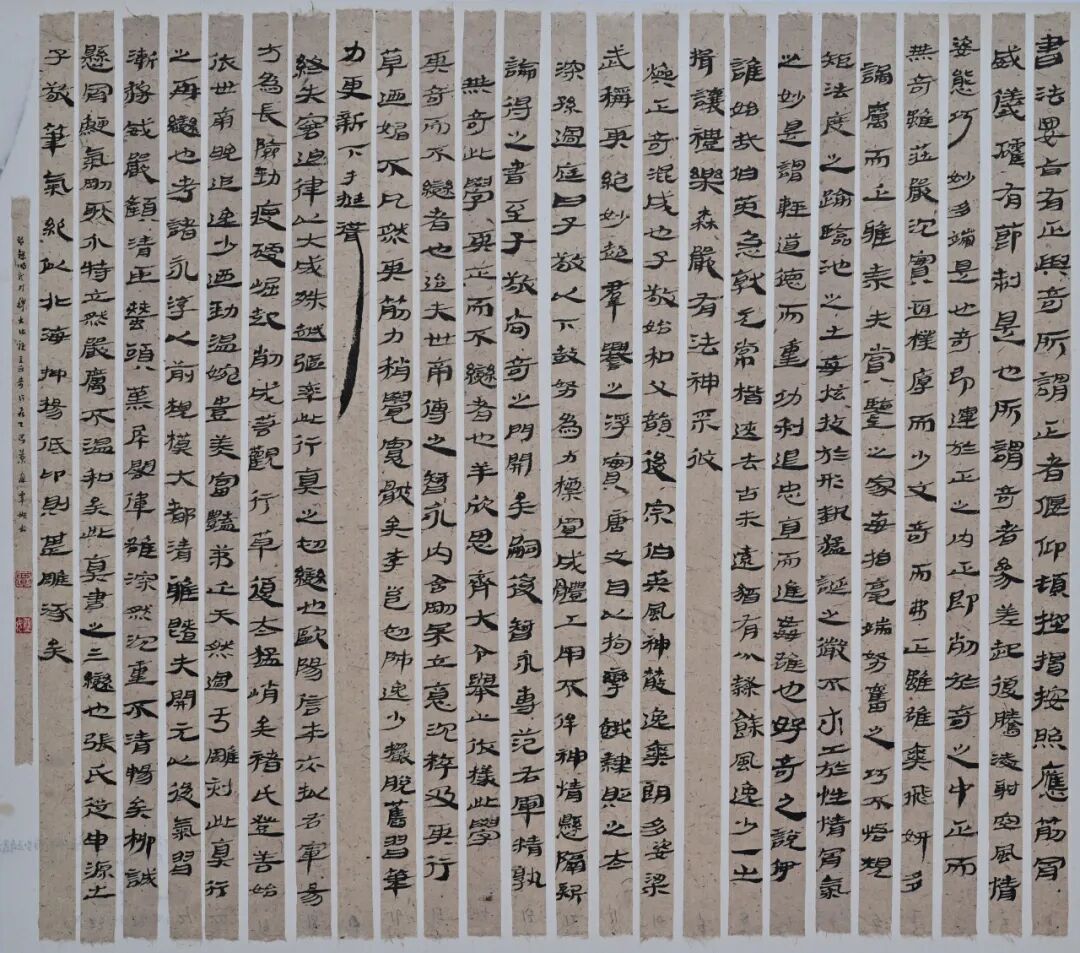 書法要旨有正與奇所謂正者偃仰頓挫揭按照應筋骨
威儀確有節制是也所謂奇者參差起復騰凌射空風情
姿態巧妙多端是也奇即連於正之內正即列於奇之中正而
無奇雖莊嚴沉實恒樸厚而少文奇而弗正雖雄爽飛妍多
譎厲而乏雅奈夫賞鑒之家每指毫端努奮之巧不悟規
矩法度之踰臨池之士每炫技於形執猛誕之微不求工於性情骨氣
之妙是謂輕道德而重功利退忠直而進姦雄也好奇之說伊
誰始哉伯英急就元常楷迹去古未遠猶有分隸餘風逸少一出
揖讓禮樂森嚴有法神采攸
煥正奇混成也子敬始和父韻後宗伯英風神散逸爽朗多姿梁
武稱其絕妙超羣譽之浮實唐文目以拘攣餓隸貶之太
深孫過庭曰子敬以下鼓努為力標置成體工用不侔神情懸隔斯
論得之書至子敬尚奇之門開矣嗣後智永專范右軍精孰
無奇此學其正而不變者也羊欣思齊大令舉止依樣此學
其奇而不變者也迨夫世南傳之智永內含剛柔立意沉粹及其行
草遒媚不凡然其筋力稍覺寬骳矣李邕初師逸少擺脫舊習筆
力更新下手挺聳
終失窘迫律以大成殊越彀率此行真之初變也歐陽信本亦擬右軍易
方為長險勁瘦硬崛起削成若觀行草復太猛峭矣褚氏登善始
依世南晚追逸少遒勁溫婉豊美富豔苐乏天然過于雕刻此真行
之再變也考諸永淳以前規模大都清雅暨夫開元以後氣習
漸務威嚴顏清臣蠶頭燕尾閎偉雄深然沉重不清暢矣柳誠
懸骨鯁氣剛耿介特立然嚴厲不溫和矣此真書之三變也張氏從申源出
子敬筆氣絕似北海抑揚低卬則甚雕琢矣